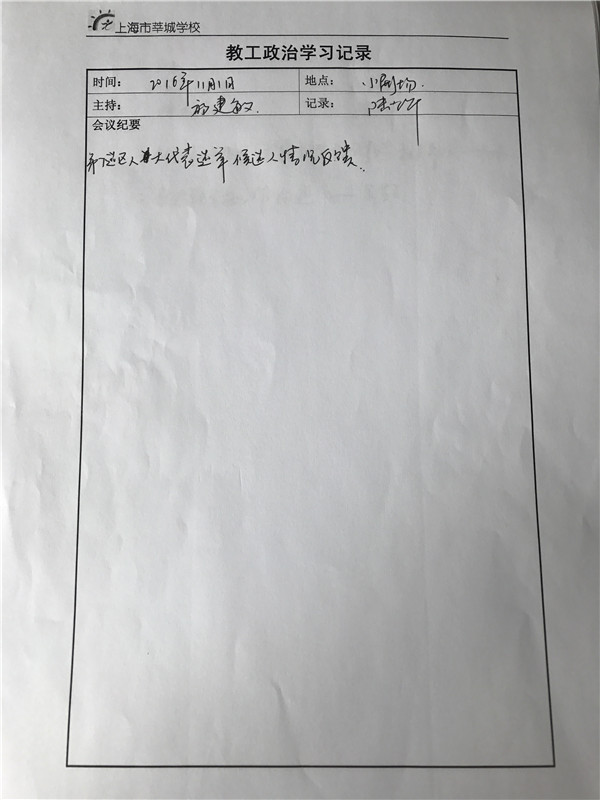 上海市莘城学校
教工政治学习记录
时间： 2016年11月1日 地点： 小剧场.
主持： 建敏 记录： 陆
会议纪要
选区人大代表选举候选人情况反馈.